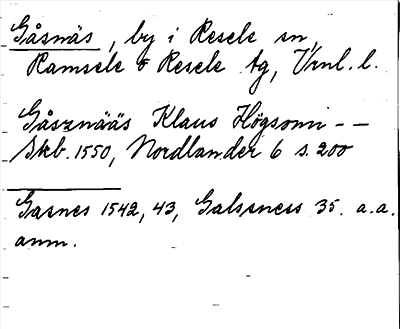 Gåsnäs, by i Resele sn,
Ramsele o Resele tg, Vrnl. l.
Gåsznääs Klaus Högsonn - -
Skb. 1550, Nordlander 6 s. 200
Gasnes 1542, 43, Galseness 35. a.a.
anm.